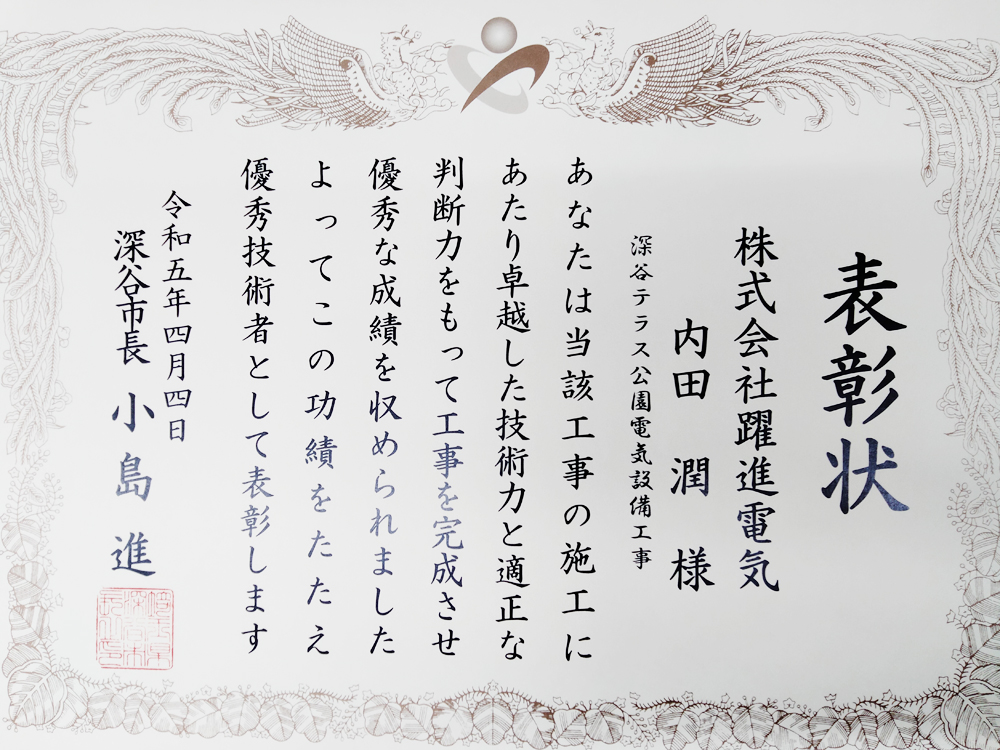 表彰状
株式会社躍進電気
内田 潤 様
深谷テラス公園電気設備工事
あなたは当該工事の施工に
あたり卓越した技術力と適正な
判断力をもって工事を完成させ
優秀な成績を収められました
よってこの功績をたたえ
優秀技術者として表彰します
令和五年四月四日
深谷市長 小島 進